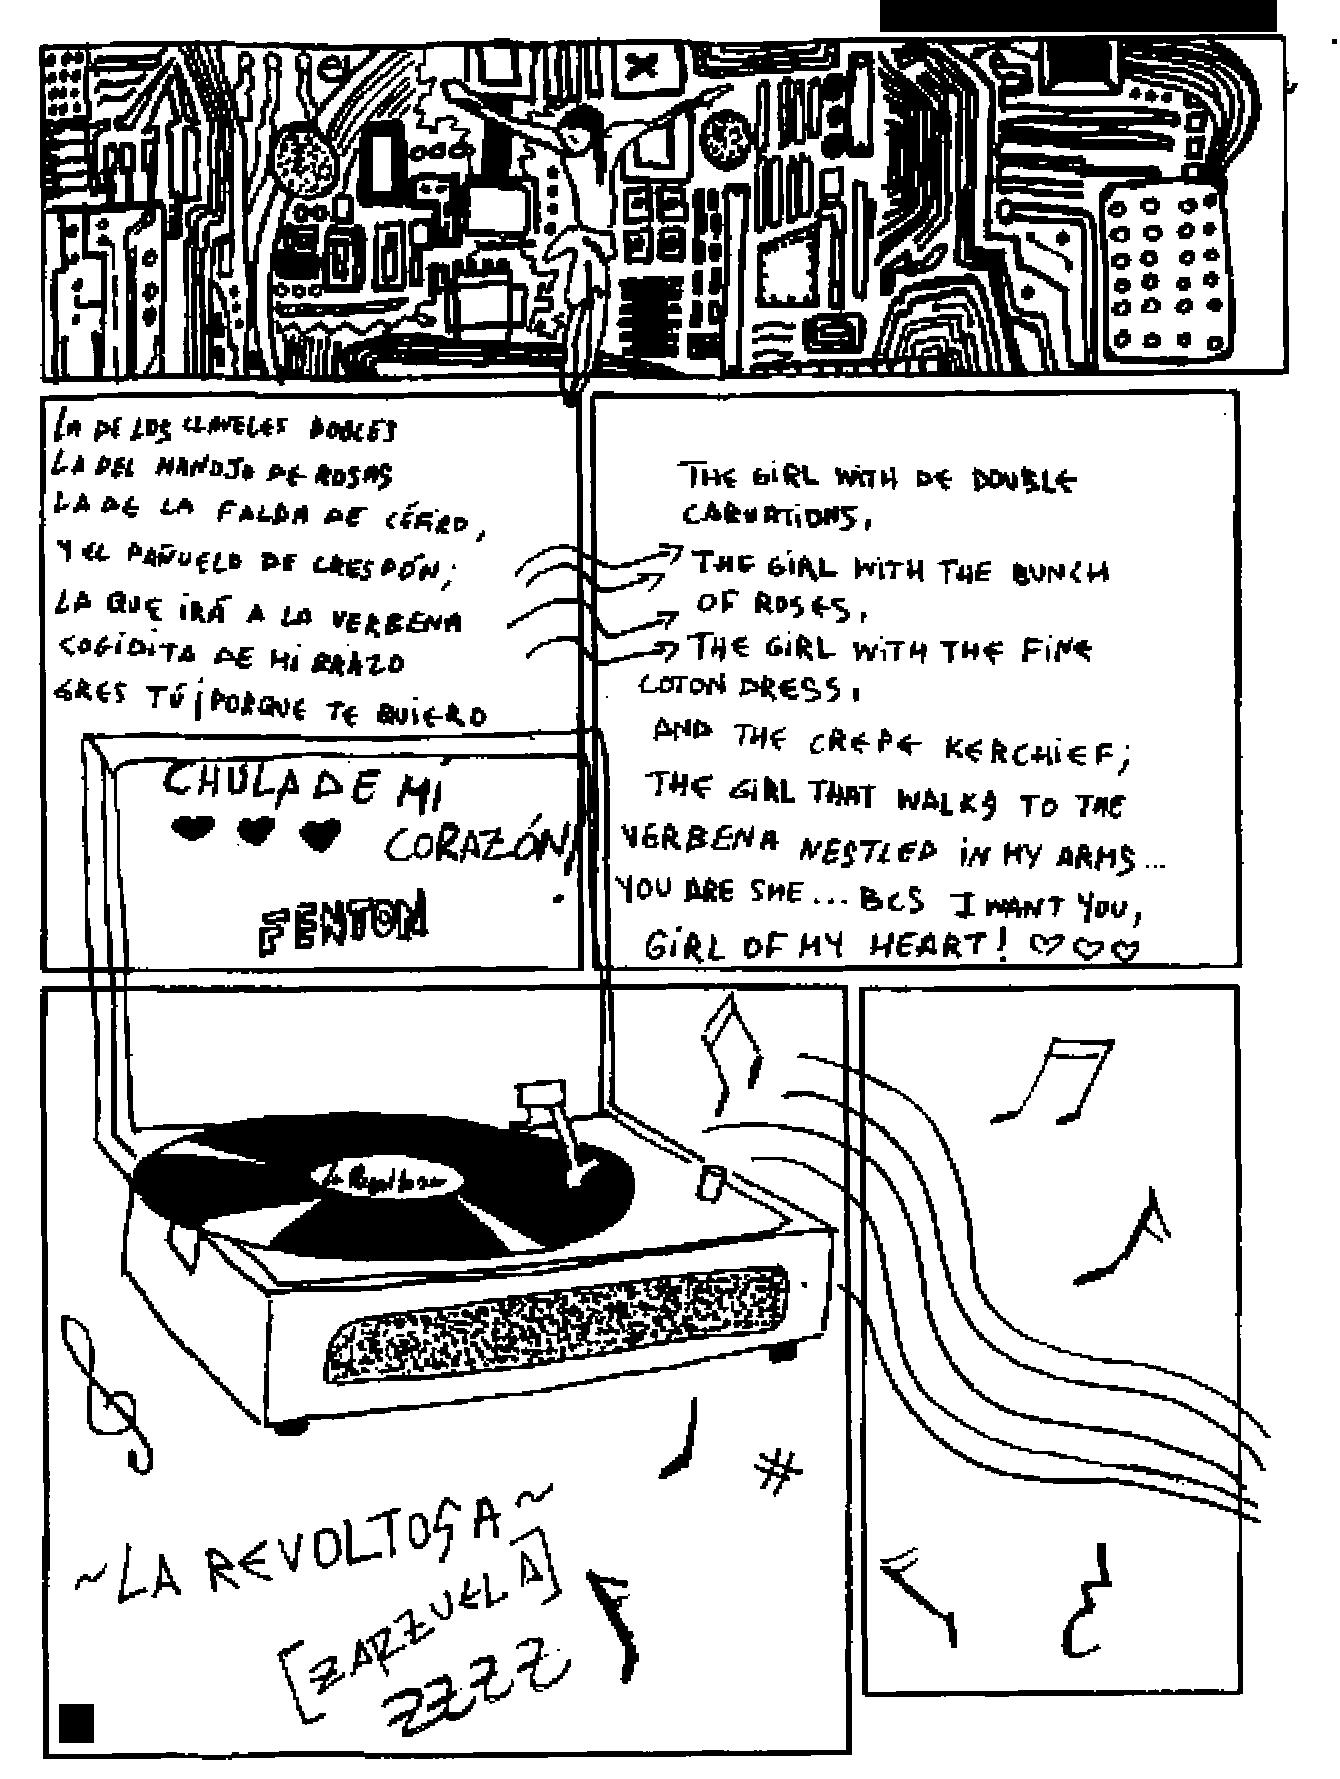 LA DE LOS CLAVELES DOBLES
LA DEL MANOJO DE ROSAS
LA DE LA FALDA DE CÉFIRO,
Y EL PAÑUELO DE CRESPÓN;
LA QUE IRÁ A LA VERBENA
COGIDITA DE MI BRAZO
ERES TÚ ¡PORQUE TE QUIERO
CHULA DE MÍ
CORAZÓN!
FENTON
THE GIRL WITH DE DOUBLE
CARNATIONS,
THE GIRL WITH THE BUNCH
OF ROSES,
THE GIRL WITH THE FINE
COTON DRESS,
AND THE CREPE KERCHIEF;
THE GIRL THAT WALKS TO THE
VERBENA NESTLED IN MY ARMS...
YOU ARE SHE... BCS I WANT YOU,
GIRL OF MY HEART!
La Revoltosa
~LA REVOLTOSA~
[ZARZUELA]
ZZZZ